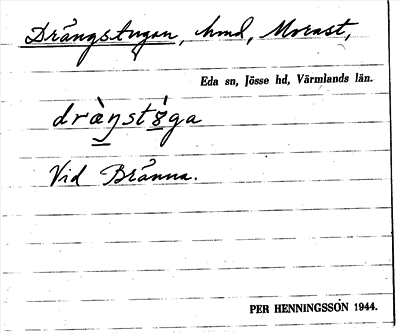 Drängstugan, hmd, Morast,
Eda sn, Jösse hd, Värmlands län.
dràŋstȣ́ga
Vid Bränna.
PER HENNINGSSON 1944.